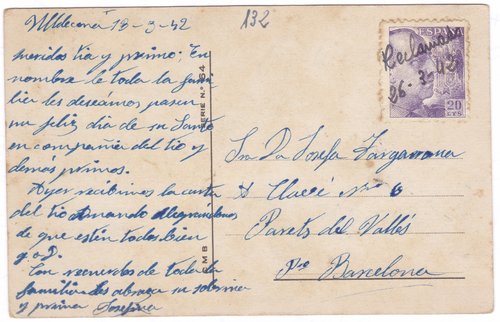 Ulldecona 18-3-42
132
Queridos tía y primo: En
nombre de toda la fami-
lia les deseamos pasen
un feliz día de su Santo
en compañía del tío y
demás primos.
Ayer recibimos la carta
del tío Armando alegrándonos
de que estén todos bien
g. a D.
Con recuerdos de toda la
familia les abraza su sobrina
y prima Josefina
SERIE N.º 64
E M B
ESPAÑA
CORREOS
20
CTS
26-3-42
Sra Da Josefa
A Clavé Nº 6
Parets del Vallés
Pª Barcelona